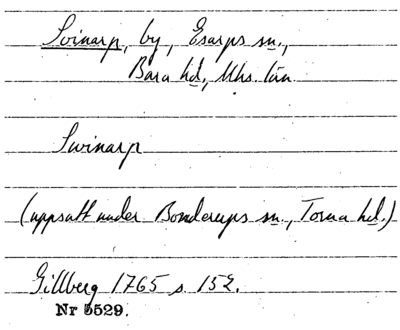 Svinarp, by, Esarps sn.,
Bara hd, Mhs. län
Swinarp
(uppsatt under Bonderups sn., Torna hd.)
Gillberg 1765 s 152.
Nr 5529.